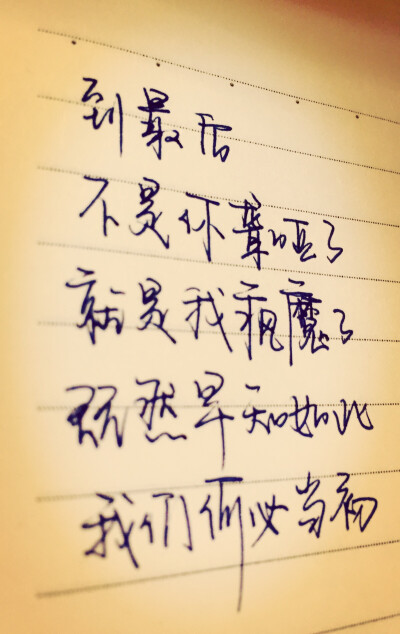 到最后
不是你聋哑了
就是我疯魔了
既然早知如此
我们何必当初